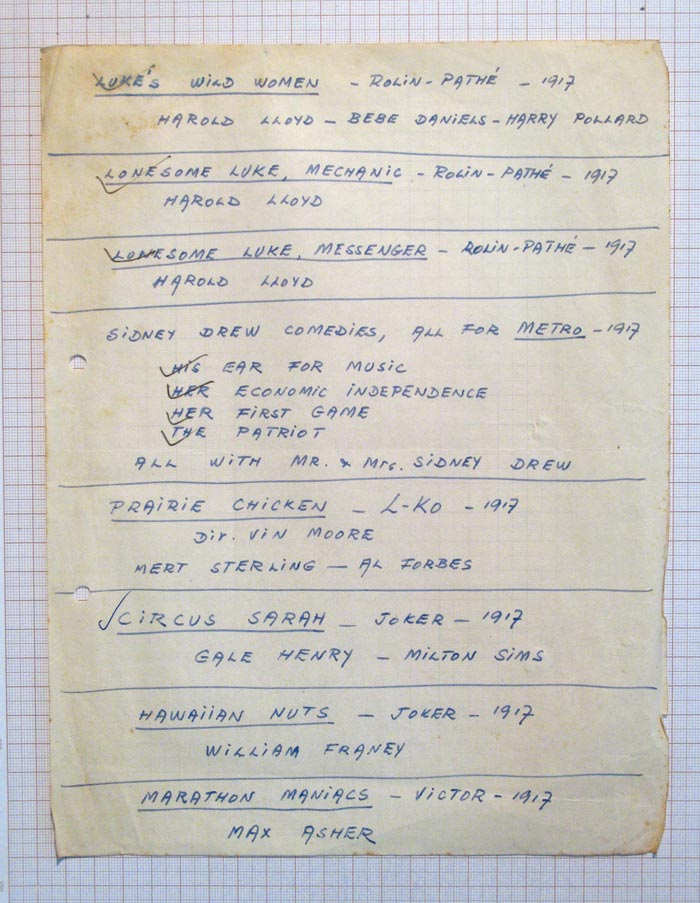 LUKE'S WILD WOMEN - ROLIN-PATHÉ - 1917
HAROLD LLOYD - BEBE DANIELS - HARRY POLLARD
LONESOME LUKE, MECHANIC - ROLIN-PATHÉ - 1917
HAROLD LLOYD
LONESOME LUKE, MESSENGER - ROLIN-PATHÉ - 1917
HAROLD LLOYD
SIDNEY DREW COMEDIES, ALL FOR METRO - 1917
HIS EAR FOR MUSIC
HER ECONOMIC INDEPENDENCE
HER FIRST GAME
THE PATRIOT
ALL WITH MR. & Mrs. SIDNEY DREW
PRAIRIE CHICKEN - L-KO - 1917
Dir. VIN MOORE
MERT STERLING - AL FORBES
CIRCUS SARAH - JOKER - 1917
GALE HENRY - MILTON SIMS
HAWAIIAN NUTS - JOKER - 1917
WILLIAM FRANEY
MARATHON MANIACS - VICTOR - 1917
MAX ASHER